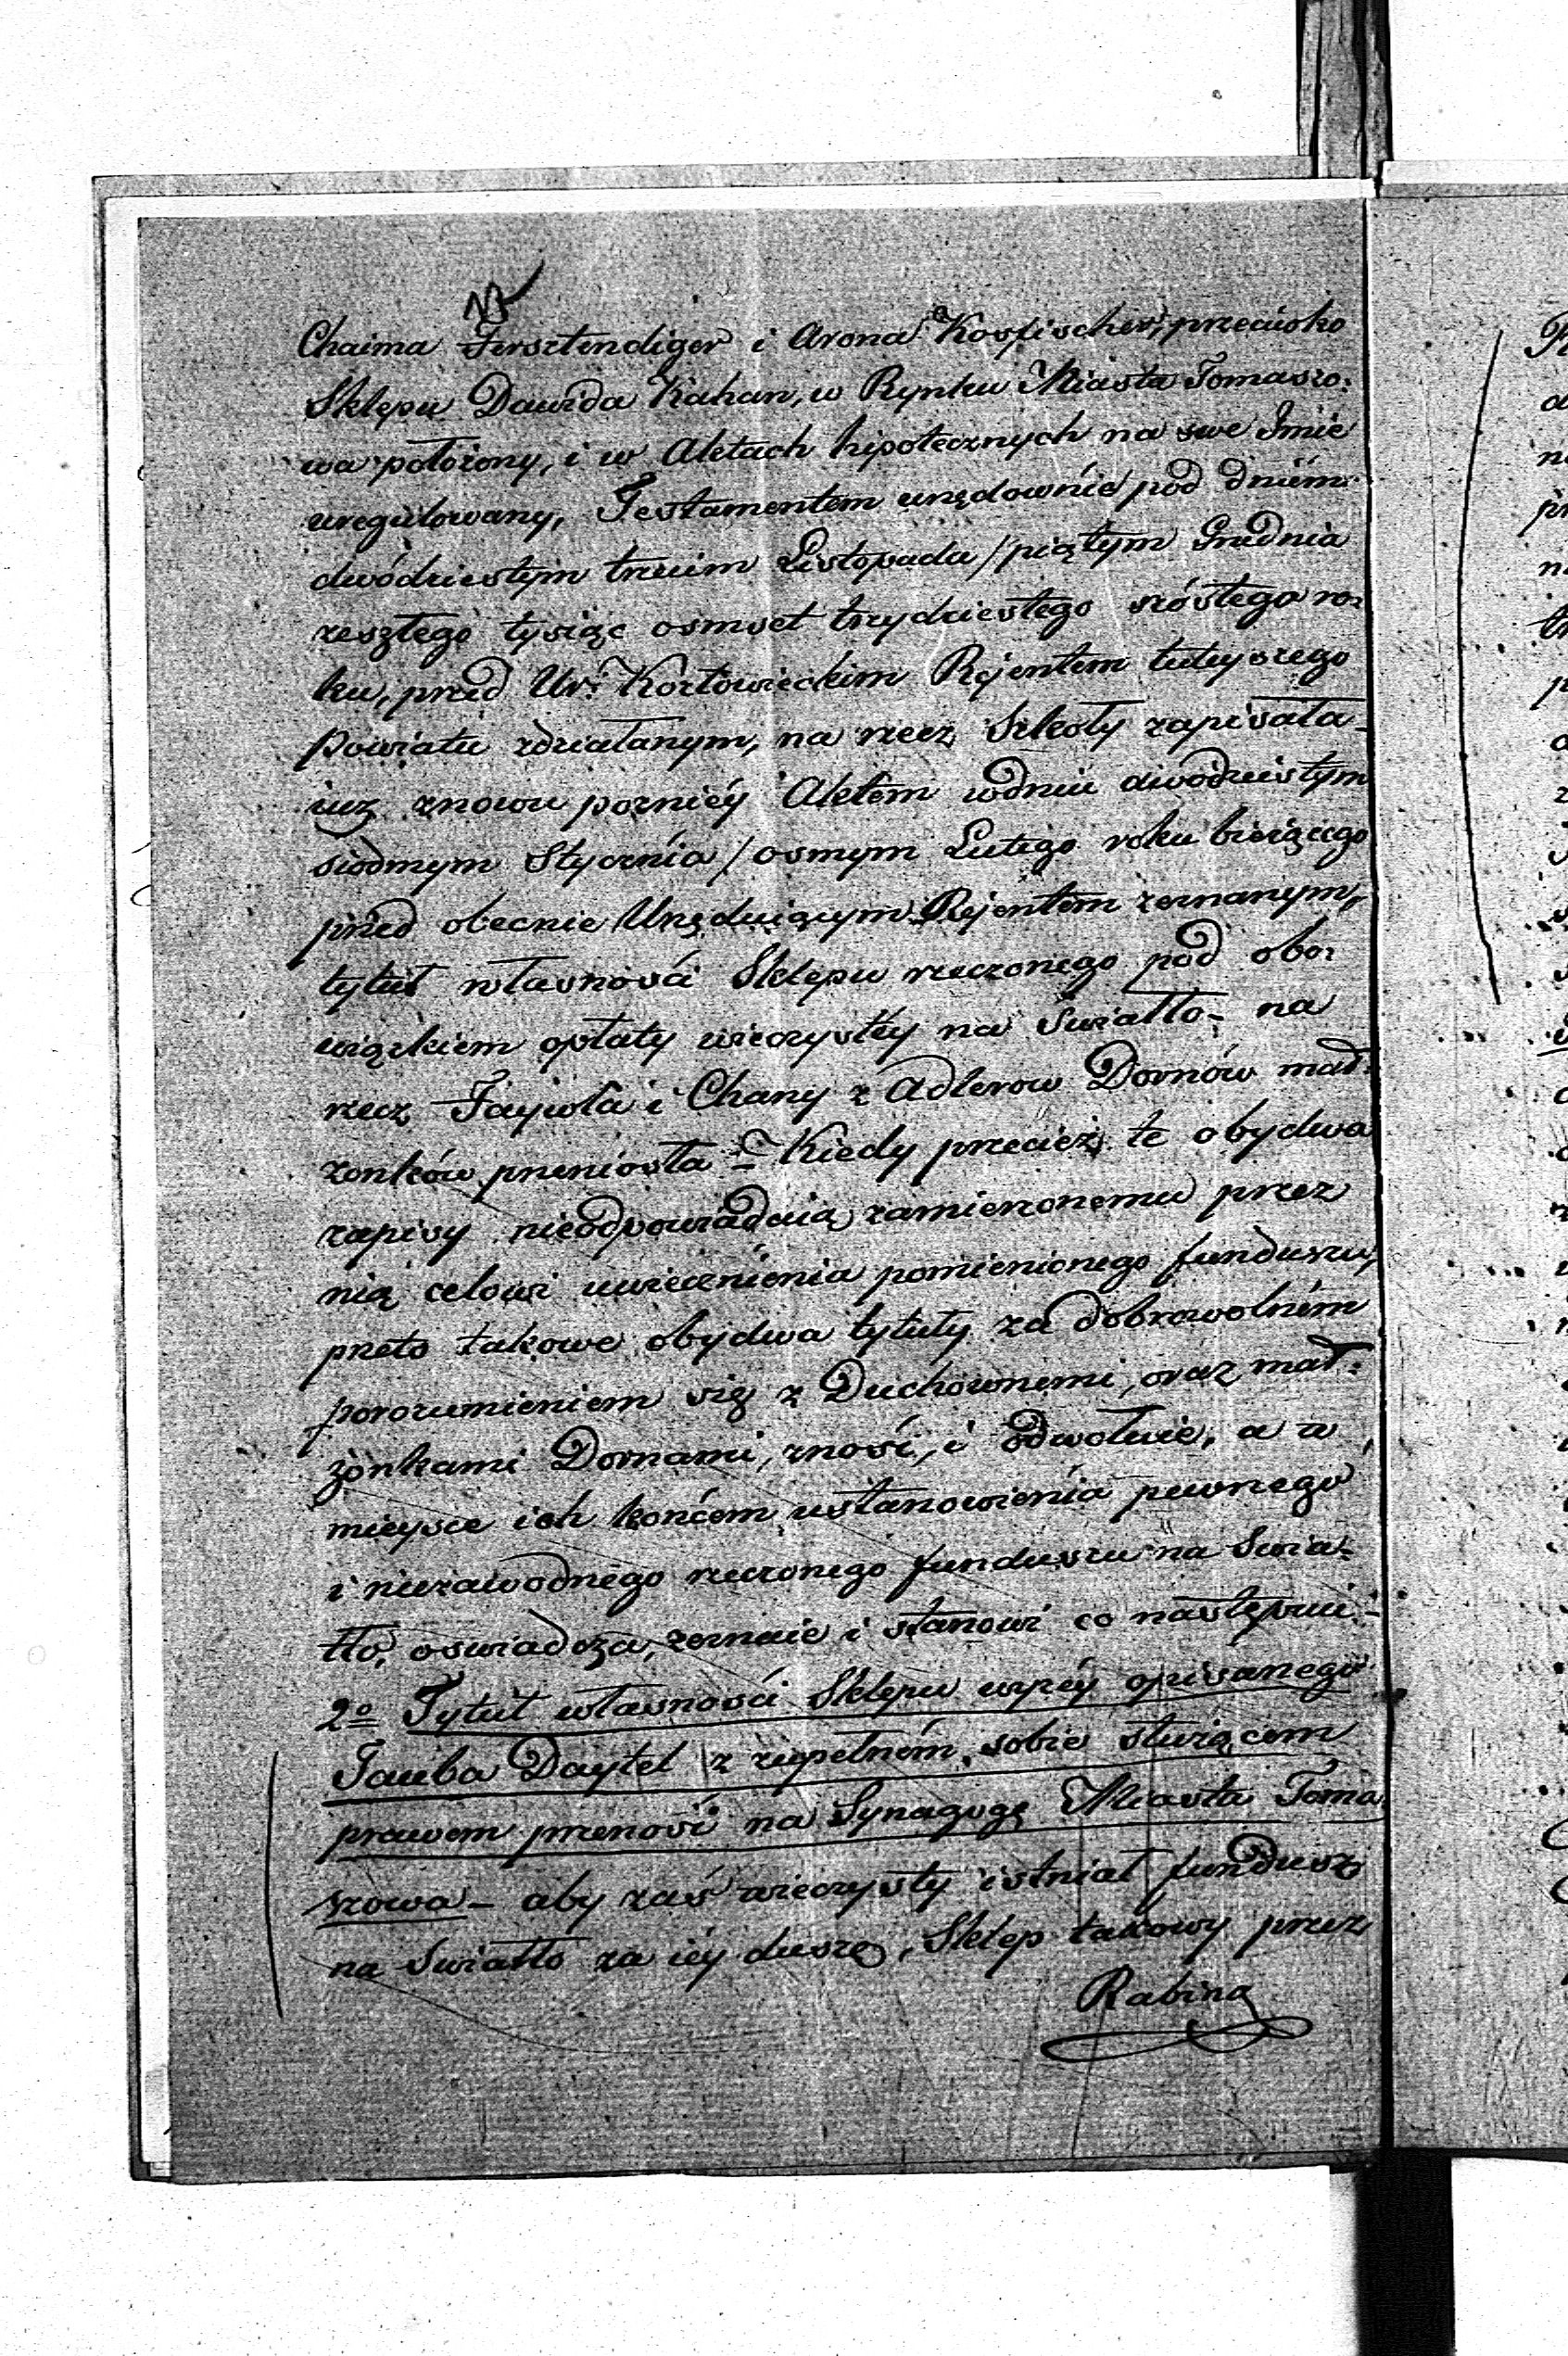 Chaima Fersztendiger i Arona Kosfischer, przeciwko
Sklepu Dawida Kahan, w Rynku Miasta Tomaszo:
wa położony, i w Aktach hipotecznych na swe Imie
uregulowany, Testamentem urzędownie pod dniem
dwódziestym trzcim Listopada / piątym Grudnia
zeszłego tysiąc osmset trzydziestego szóstego ro:
ku, przed Ur: Kozłowieckim Rejentem tuteyszego
Powiatu zdziałanym, na rzecz Szkoły zapisała
iuz znowu pozniéy Aktem wdniu dwódziestym
siodmym Stycznia / osmym Lutego roku bieżącego
przed obecnie Urzęduiącym Rejentem zeznanym,
tytuł własności Sklepu rzeczonego pod obo:
wiązkiem opłaty wieczystéy na Światło – na
rzecz Faywla i Chany z Adlerow Dornów mał:
żonków przeniosła – Kiedy przecież te obydwa
zapisy nieodpowiadaią zamierzonemu przez
nią celowi uwiecznienia pomienionego funduszu,
przeto takowe obydwa tytuły za dobrowolném
porozumieniem się z Duchownemi, oraz mał:
żonkami Dornami, znosi, i odwołuie, a w
mieysce ich końcem ustanowienia pewnego
i niezawodnego rzeczonego funduszu na Świa:
tło, oswiadcza, zeznaie i stanowi co następuie:
2o Tytuł własności Sklepu wyzéy opisanego
Tauba Daytel z zupełném sobie służącem
prawem przenosi na Synagogę Miasta Toma
szowa – aby zaś wieczysty istniał fundusz
na Światło za iéy duszę, Sklep takowy przez
Rabina